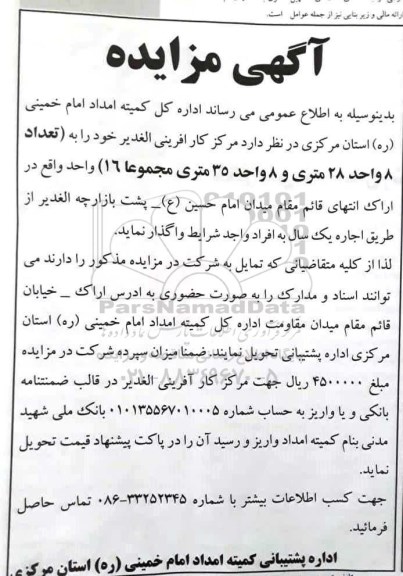 ارائه مالی و زیر بنایی نیز از جمله عوامل است.
آگهی مزایده
بدینوسیله به اطلاع عمومی می رساند اداره کل کمیته امداد امام خمینی
(ره) استان مرکزی در نظر دارد مرکز کار افرینی الغدیر خود را به (تعداد
۸ واحد ۲۸ متری و ۸ واحد ۳۵ متری مجموعا ۱۶) واحد واقع در
اراک انتهای قائم مقام میدان امام حسین (ع)_ پشت بازارچه الغدیر از
طریق اجاره یک سال به افراد واجد شرایط واگذار نماید.
لذا از کلیه متقاضیانی که تمایل به شرکت در مزایده مذکور را دارند می
توانند اسناد و مدارک را به صورت حضوری به ادرس اراک _ خیابان
ParsNamadData
قائم مقام میدان مقاومت اداره کل کمیته امداد امام خمینی (ره) استان
مرکزی اداره پشتیبانی تحویل نمایند. ضمنا میزان سپرده شرکت در مزایده
مبلغ ۴۵۰۰۰۰۰ ریال جهت مرکز کار آفرینی الغدیر در قالب ضمنتنامه
بانکی و یا واریز به حساب شماره ۰۱۰۱۳۵۵۶۷۰۱۰۰۰۵ بانک ملی شهید
مدنی بنام کمیته امداد واریز و رسید آن را در پاکت پیشنهاد قیمت تحویل
نماید.
جهت کسب اطلاعات بیشتر با شماره ۳۳۲۵۲۳۴۵-۰۸۶ تماس حاصل
فرمائید.
اداره پشتیبانی کمیته امداد امام خمینی (ره) استان مرکزی